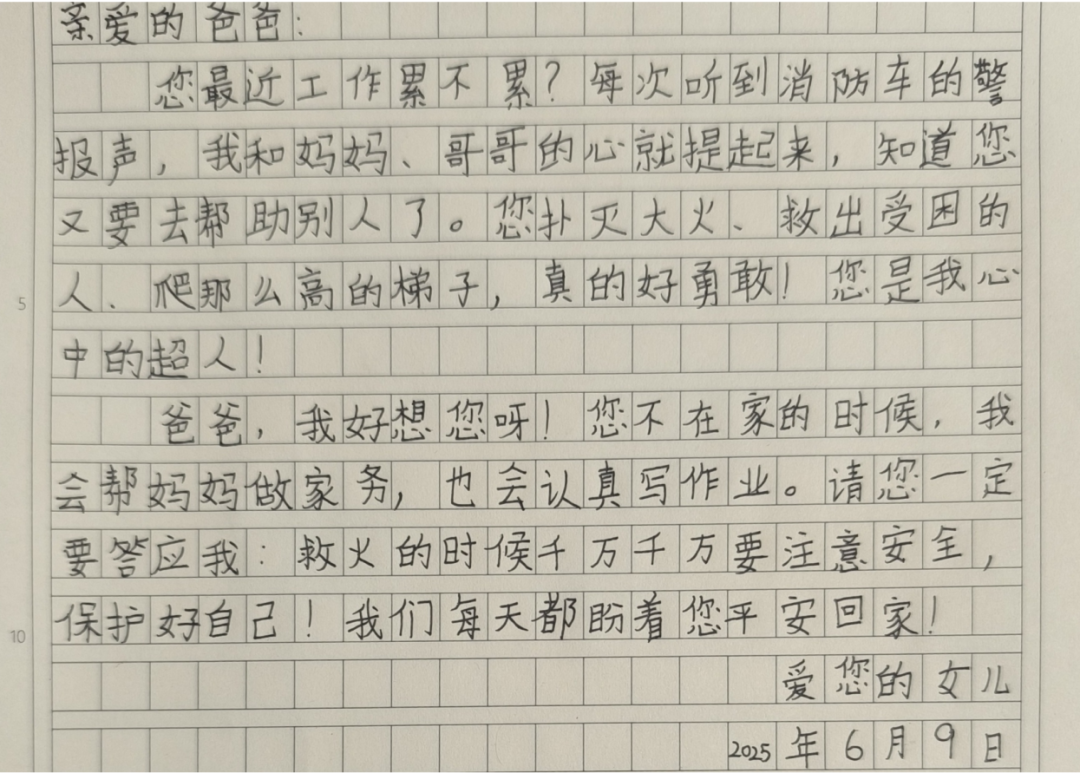 亲爱的爸爸：
您最近工作累不累？每次听到消防车的警
报声，我和妈妈、哥哥的心就提起来，知道您
又要去帮助别人了。您扑灭大火、救出受困的
5
人、爬那么高的梯子，真的好勇敢！您是我心
中的超人！
爸爸，我好想您呀！您不在家的时候，我
会帮妈妈做家务，也会认真写作业。请您一定
要答应我：救火的时候千万千万要注意安全，
10
保护好自己！我们每天都盼着您平安回家！
爱您的女儿
2025年6月9日